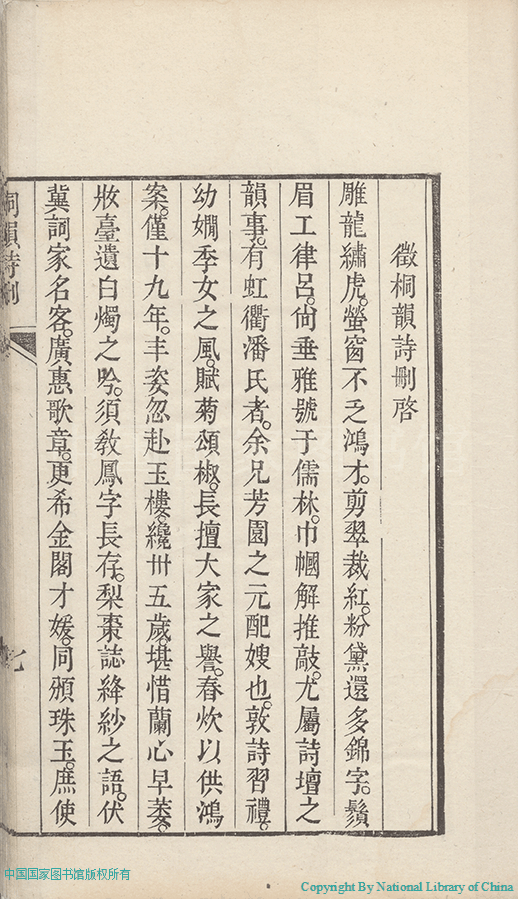 徵桐韻詩刪啓
雕龍繡虎。螢窗不乏鴻才。剪翠裁紅。粉黛還多錦字。鬚
眉工律呂。尙垂雅號于儒林。巾幗解推敲。尤屬詩壇之
韻事。有虹衢潘氏者。余兄芳園之元配嫂也。敦詩習禮。
幼嫺季女之風。賦菊頌椒。長擅大家之譽。春炊以供鴻
案。僅十九年。丰姿忽赴玉樓。纔卅五歲。堪惜蘭心早萎。
妝臺遺白燭之吟。須教鳳字長存。梨棗誌絳紗之語。伏
冀詞家名客。廣惠歌章。更希金閣才媛。同頒珠玉。庶使
桐韻詩刪
中国国家图书馆版权所有
Copyright By National Library of China